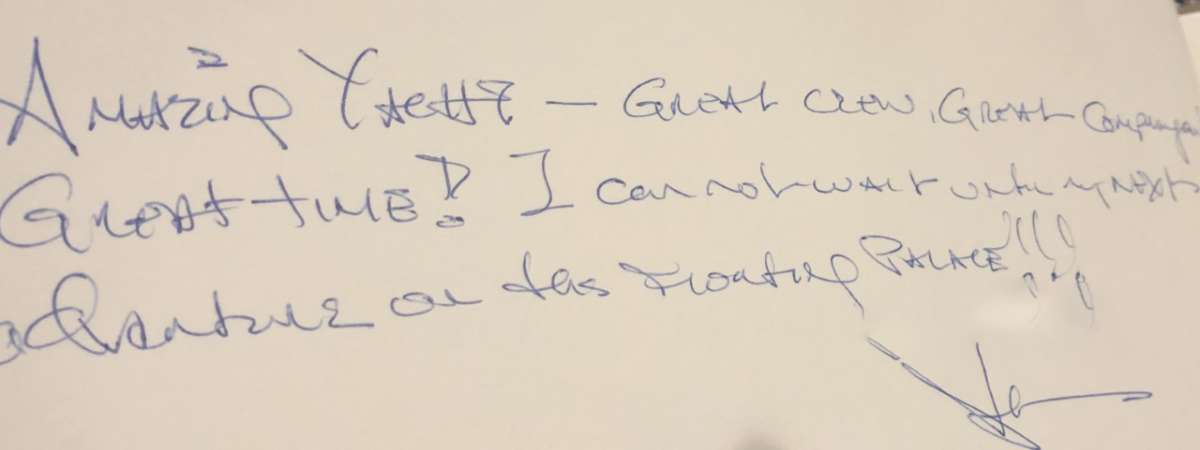 Amazing Yacht — Great crew, Great Company
Great time! I can not wait until my next
adventure on this Floating Palace!!!